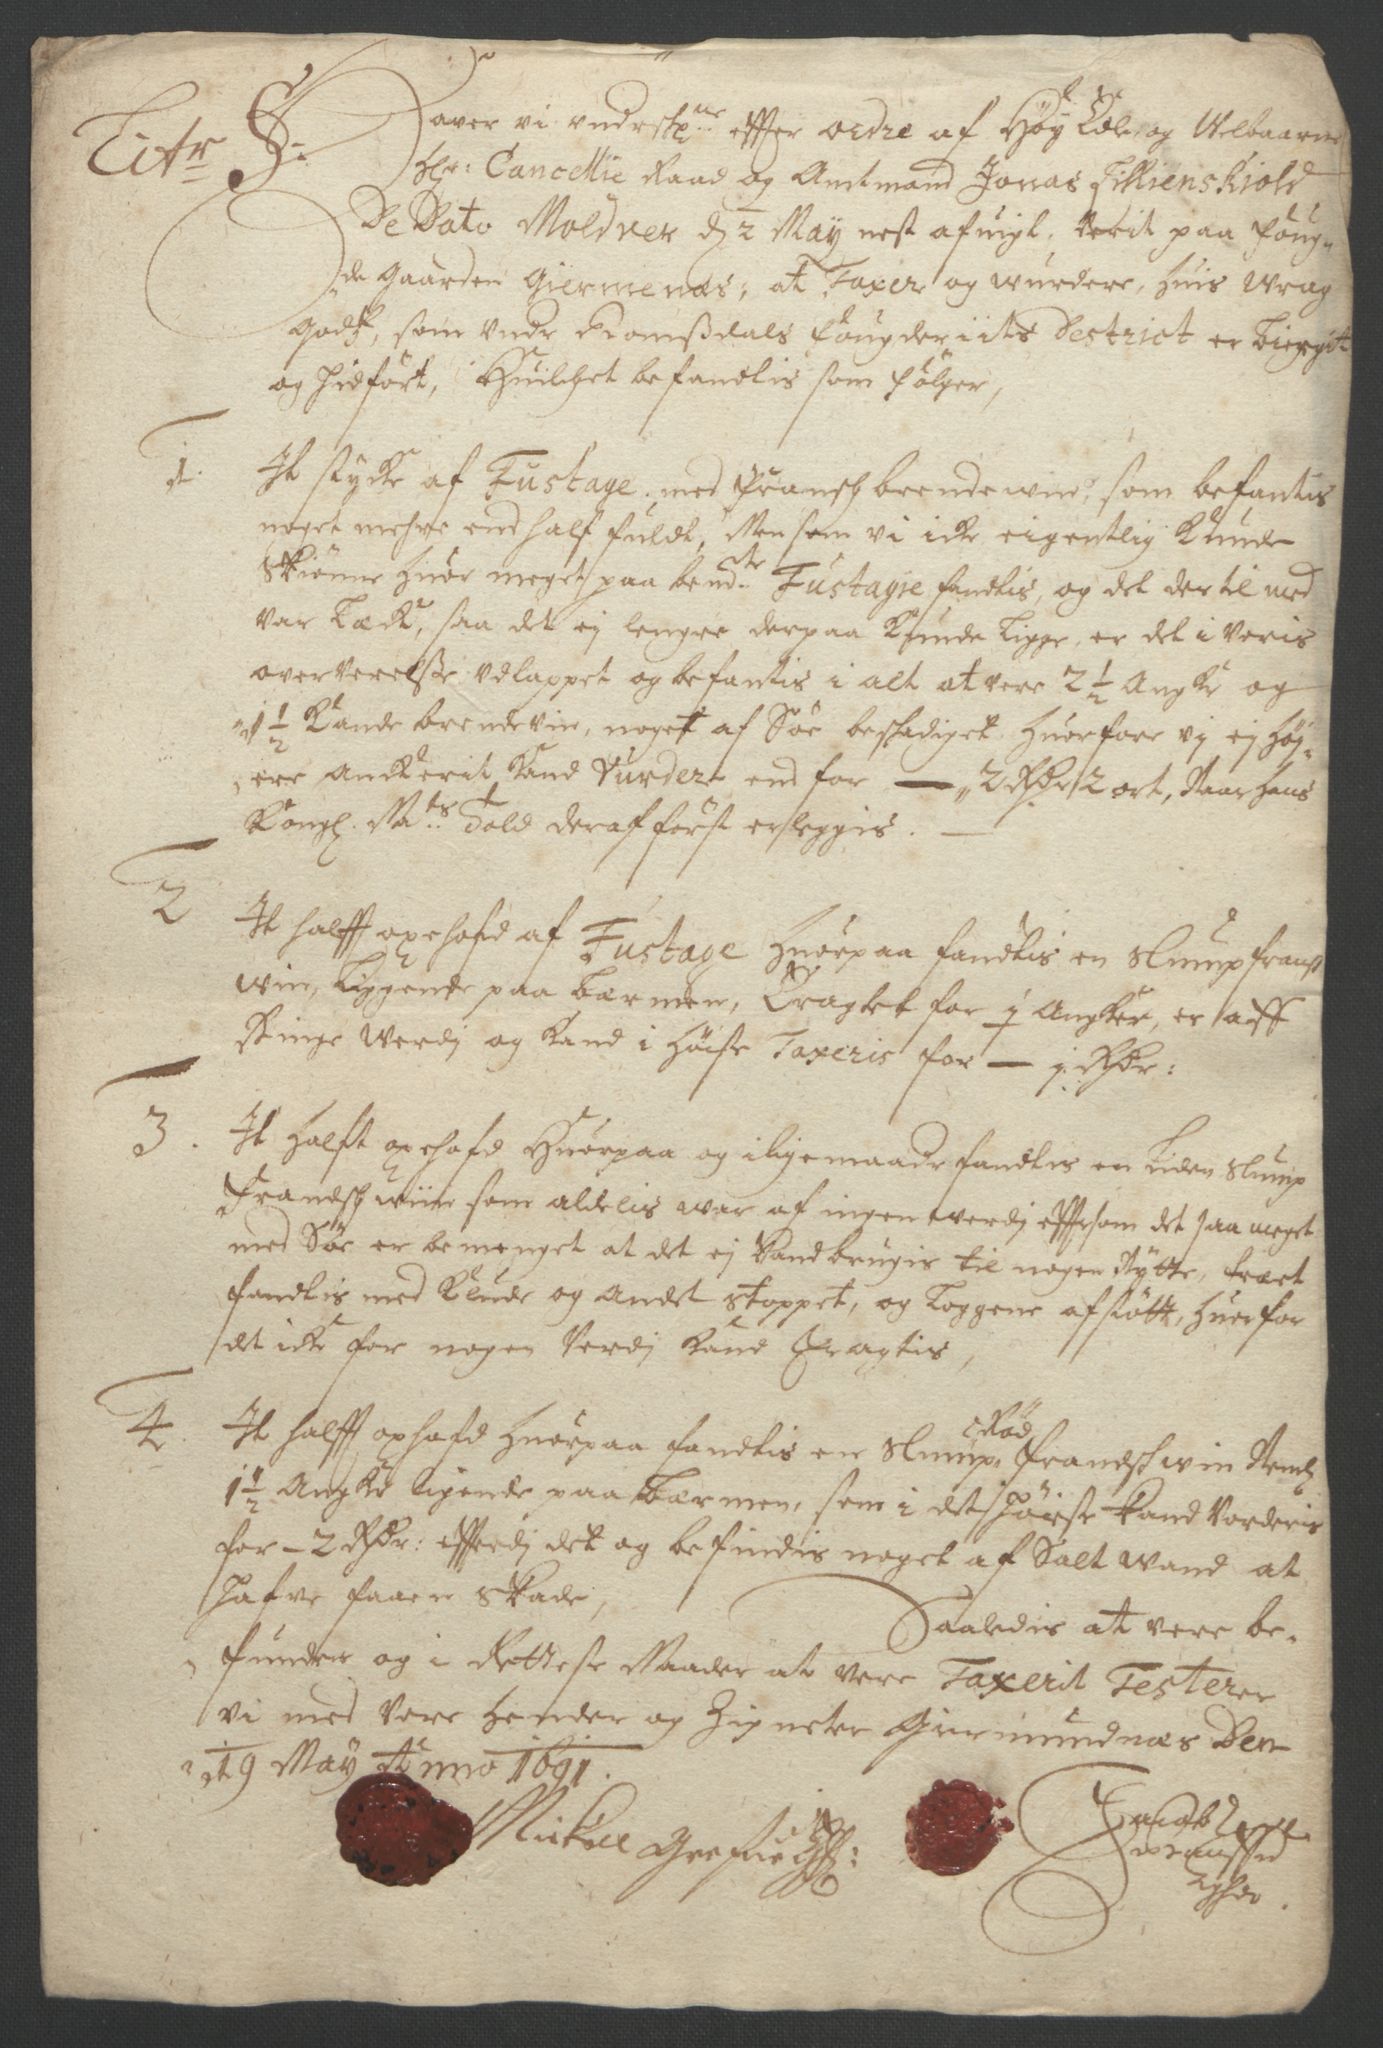 Litr S:
Haver vi undrskne effter ordre af Höy Edle og Welbaarne
Hr: Cancellie Raad og Amtmand Jonas Lillienskiold
De Dato Moldver d 2 May nest afuigt. Verit paa Foug-
de Gaarden Giermenæs, at Taxere og wurdere, huis wrag
Godtz, som undr Romßdals Fougderiits Destrict er biergit
og hidfört, Huilchet befandtis som fölger,
1. It stycke af Fustage med Fransch brendewin, som befantis
noget mehre end half fuldt, Men som vi icke eigentlig kunde
skiönne huor meget paa bemdte Fustagie fandtis, og det der til med
var Læck, saa det ej lengre derpaa kunde ligge, er det i voris
oververelße udlappet og befantis i alt at vere 2 1/2 Ancke og
1 1/2 Kande brendevin, noget af Söe beskadiget huorfore vj ej höy-
ere Anckerit kand Vurdert end for — 2 Rdr 2 ort, Naar Hans
Kongl. Mats Told deraf först erleggis.
2 It halff oxehofd af Fustage huorpaa fandtis en slump fransk
win, liggende paa bærmen, Eragtet for 1 Ancker, er aff
Ringe werdj og kand i höiste Taxeris for — 1 Rdr:
3. It halft oxehofd Huorpaa og i ligemaade fandtis en liden slump
Frandsch wiin som aldelis war af ingen werdj efftersom det saa meget
med Söe er bemenget at det ej kand brugis til nogen Nytte, træet
fandtis med klude og andet stoppet, og Loggene afstötte, huorfor
det icke for nogen Verdj kand Eragtis,
4. It halff oxhofd huorpaa fandtis en slump Röd Frandsch win Neml
1 1/2 Ancke ligende paa bærmen, som i det höieste kand Vorderis
for - 2 Rdr: efferdj det og befindis noget af Salt wand at
hafve faaen skade,
Saaledis at vere be-
funden og i Retteste Maader at vere Taxerit Testerer
vi med vore Hender og Zigneter Giermundnæs Den
19 May Anno 1691.
Mickel
Jacob